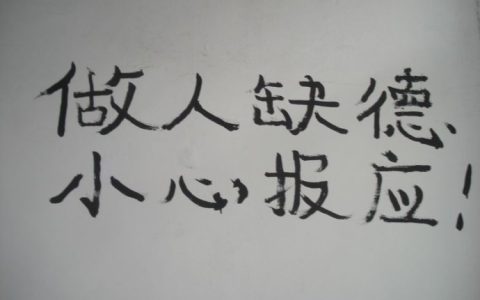 做人缺德
小心报应!